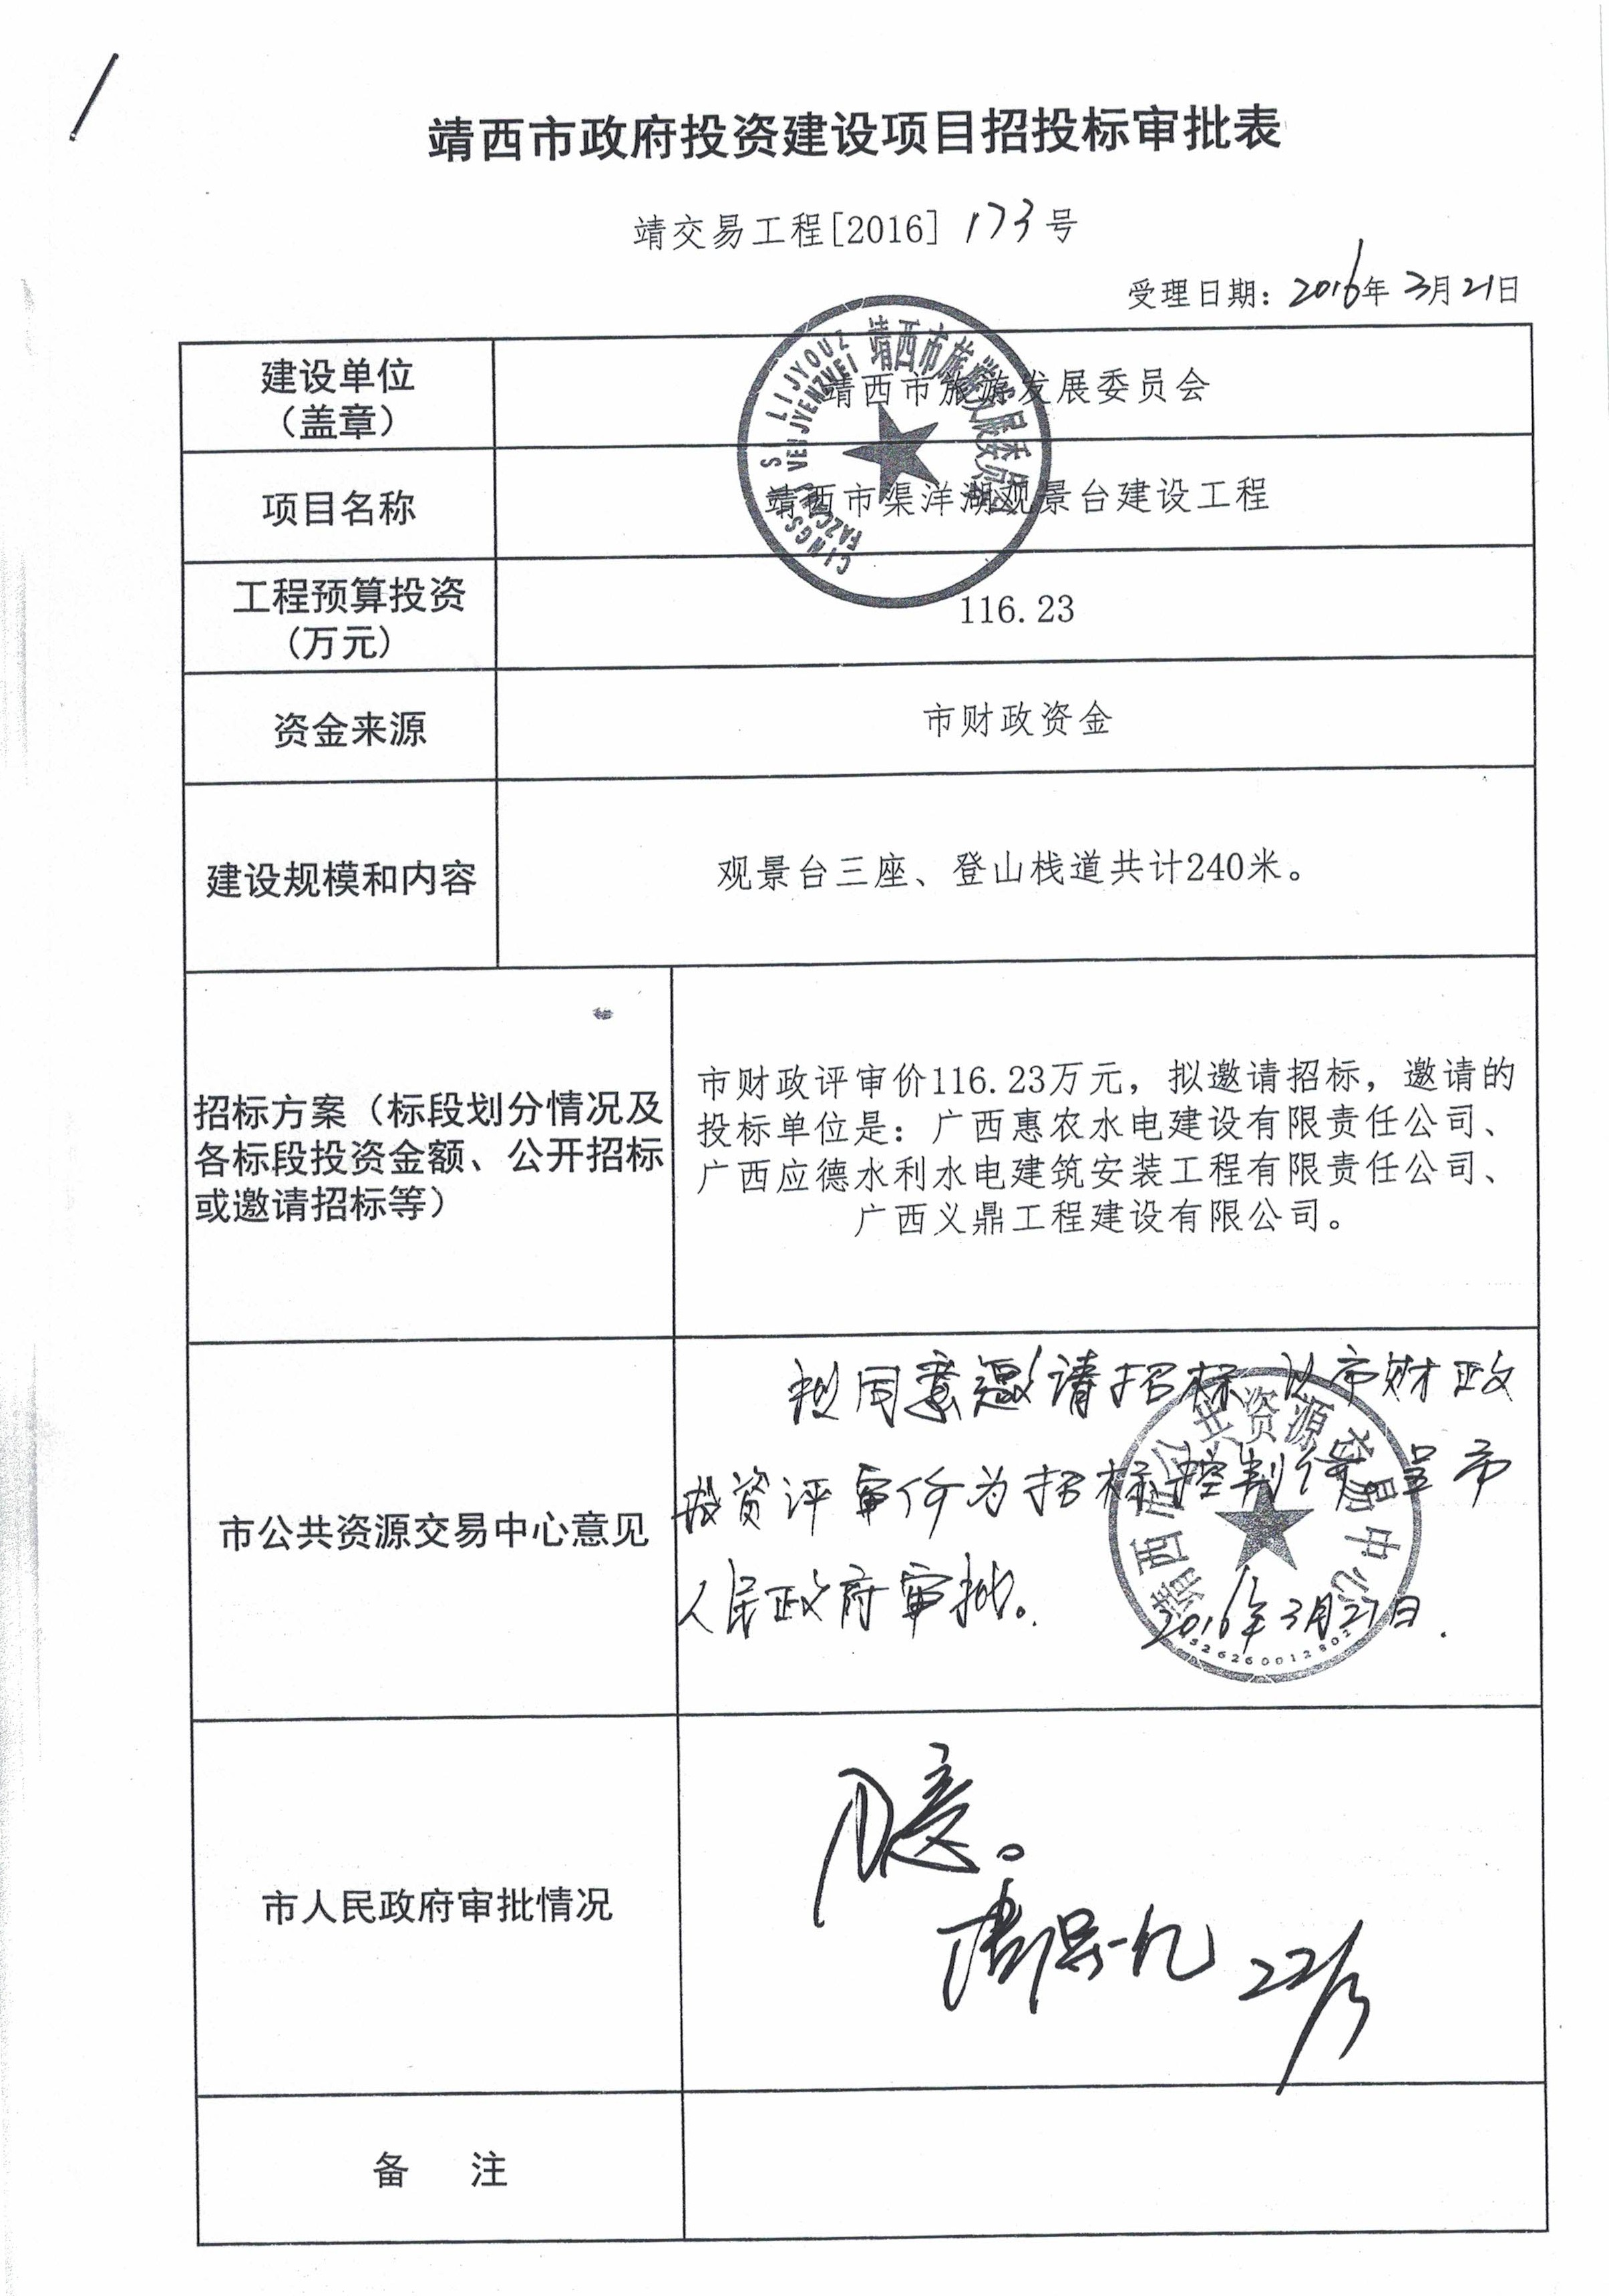 靖西市政府投资建设项目招投标审批表
靖交易工程[2016] 173号
受理日期：2016年3月21日
建设单位
（盖章）
靖西市旅游发展委员会
项目名称
靖西市渠洋湖观景台建设工程
工程预算投资
(万元)
116.23
资金来源
市财政资金
建设规模和内容
观景台三座、登山栈道共计240米。
招标方案（标段划分情况及
各标段投资金额、公开招标
或邀请招标等）
市财政评审价116.23万元，拟邀请招标，邀请的
投标单位是：广西惠农水电建设有限责任公司、
广西应德水利水电建筑安装工程有限责任公司、
广西义鼎工程建设有限公司。
市公共资源交易中心意见
拟同意邀请招标 以市财政
投资评审价为招标控制价 呈市
人民政府审批。
2016年3月21日.
靖西市公共资源交易中心
市人民政府审批情况
同意。
22/3
备 注